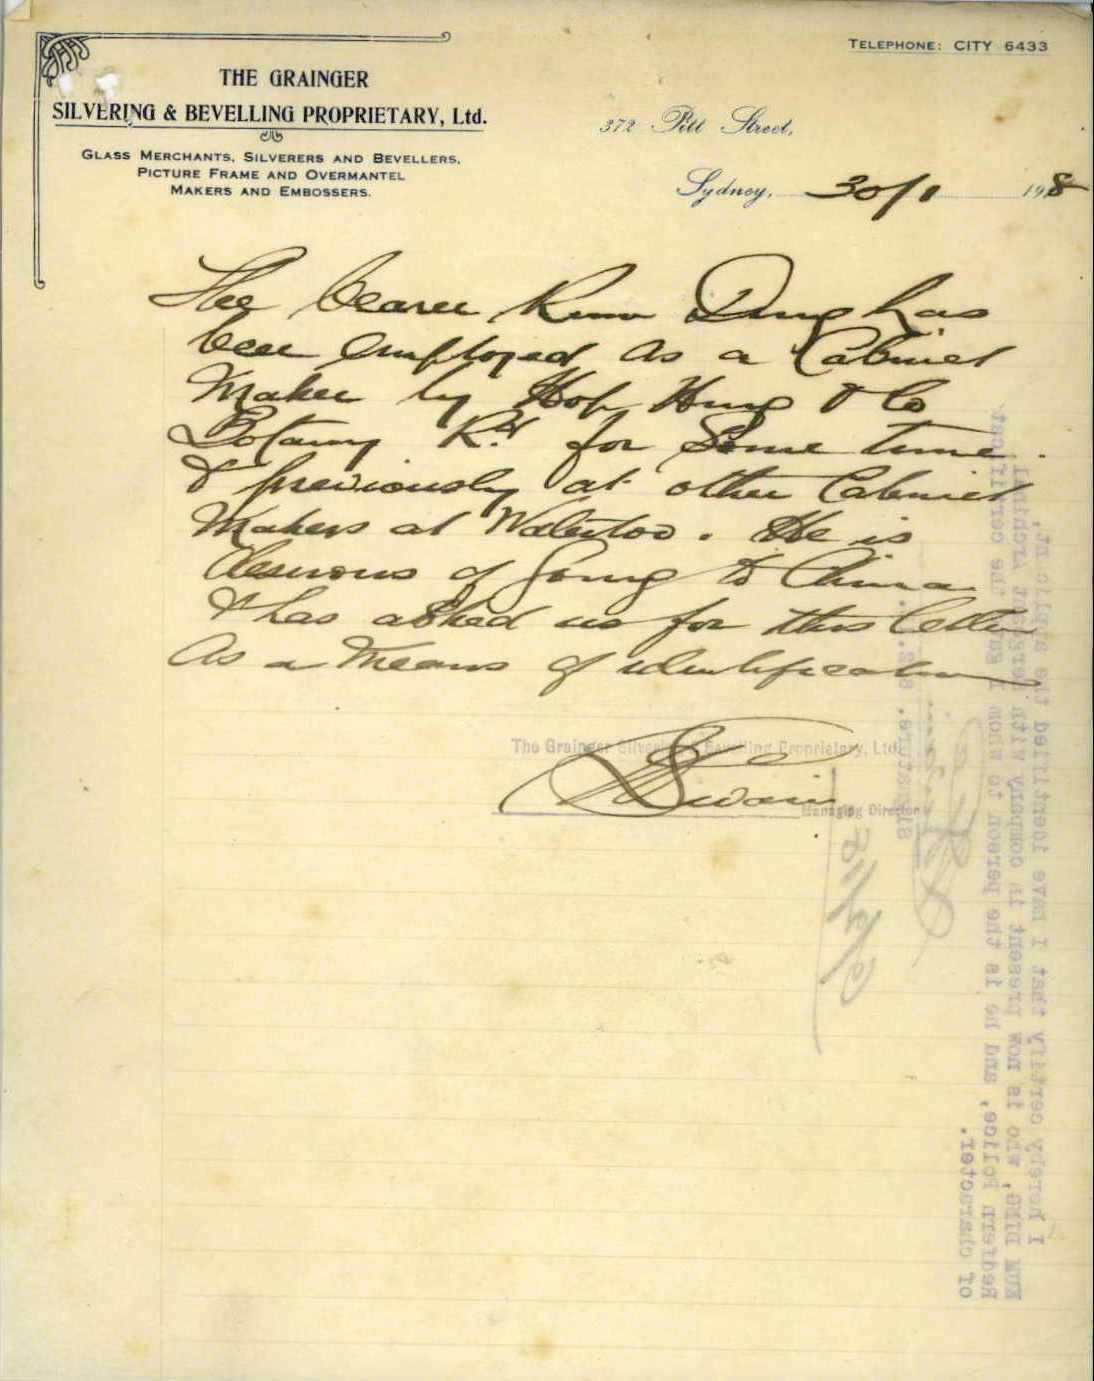 TELEPHONE: CITY 6433
THE GRAINGER
SILVERING & BEVELLING PROPRIETARY, Ltd.
GLASS MERCHANTS, SILVERERS AND BEVELLERS,
PICTURE FRAME AND OVERMANTEL
MAKERS AND EMBOSSERS.
372 Pitt Street,
Sydney, 30/1 198
The bearer Kum Ding has
been employed as a Cabinet
Maker by Hop Hing & Co
Botany Rd for some time.
& previously at other Cabinet
Makers at Waterloo. He is
desirous of going to China
& has asked us for this letter
As a Means of identification
The Grainger Silvering & Bevelling Proprietary, Ltd.
Swain
Managing Director
I hereby certify that I have identified the applicant,
KUM DING, who is now present in company with Sergeant
Redfern Police, and he is the person to whom I gave the certificate
of character.
Signature.